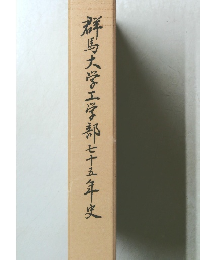 群馬大学工学部七十五年史